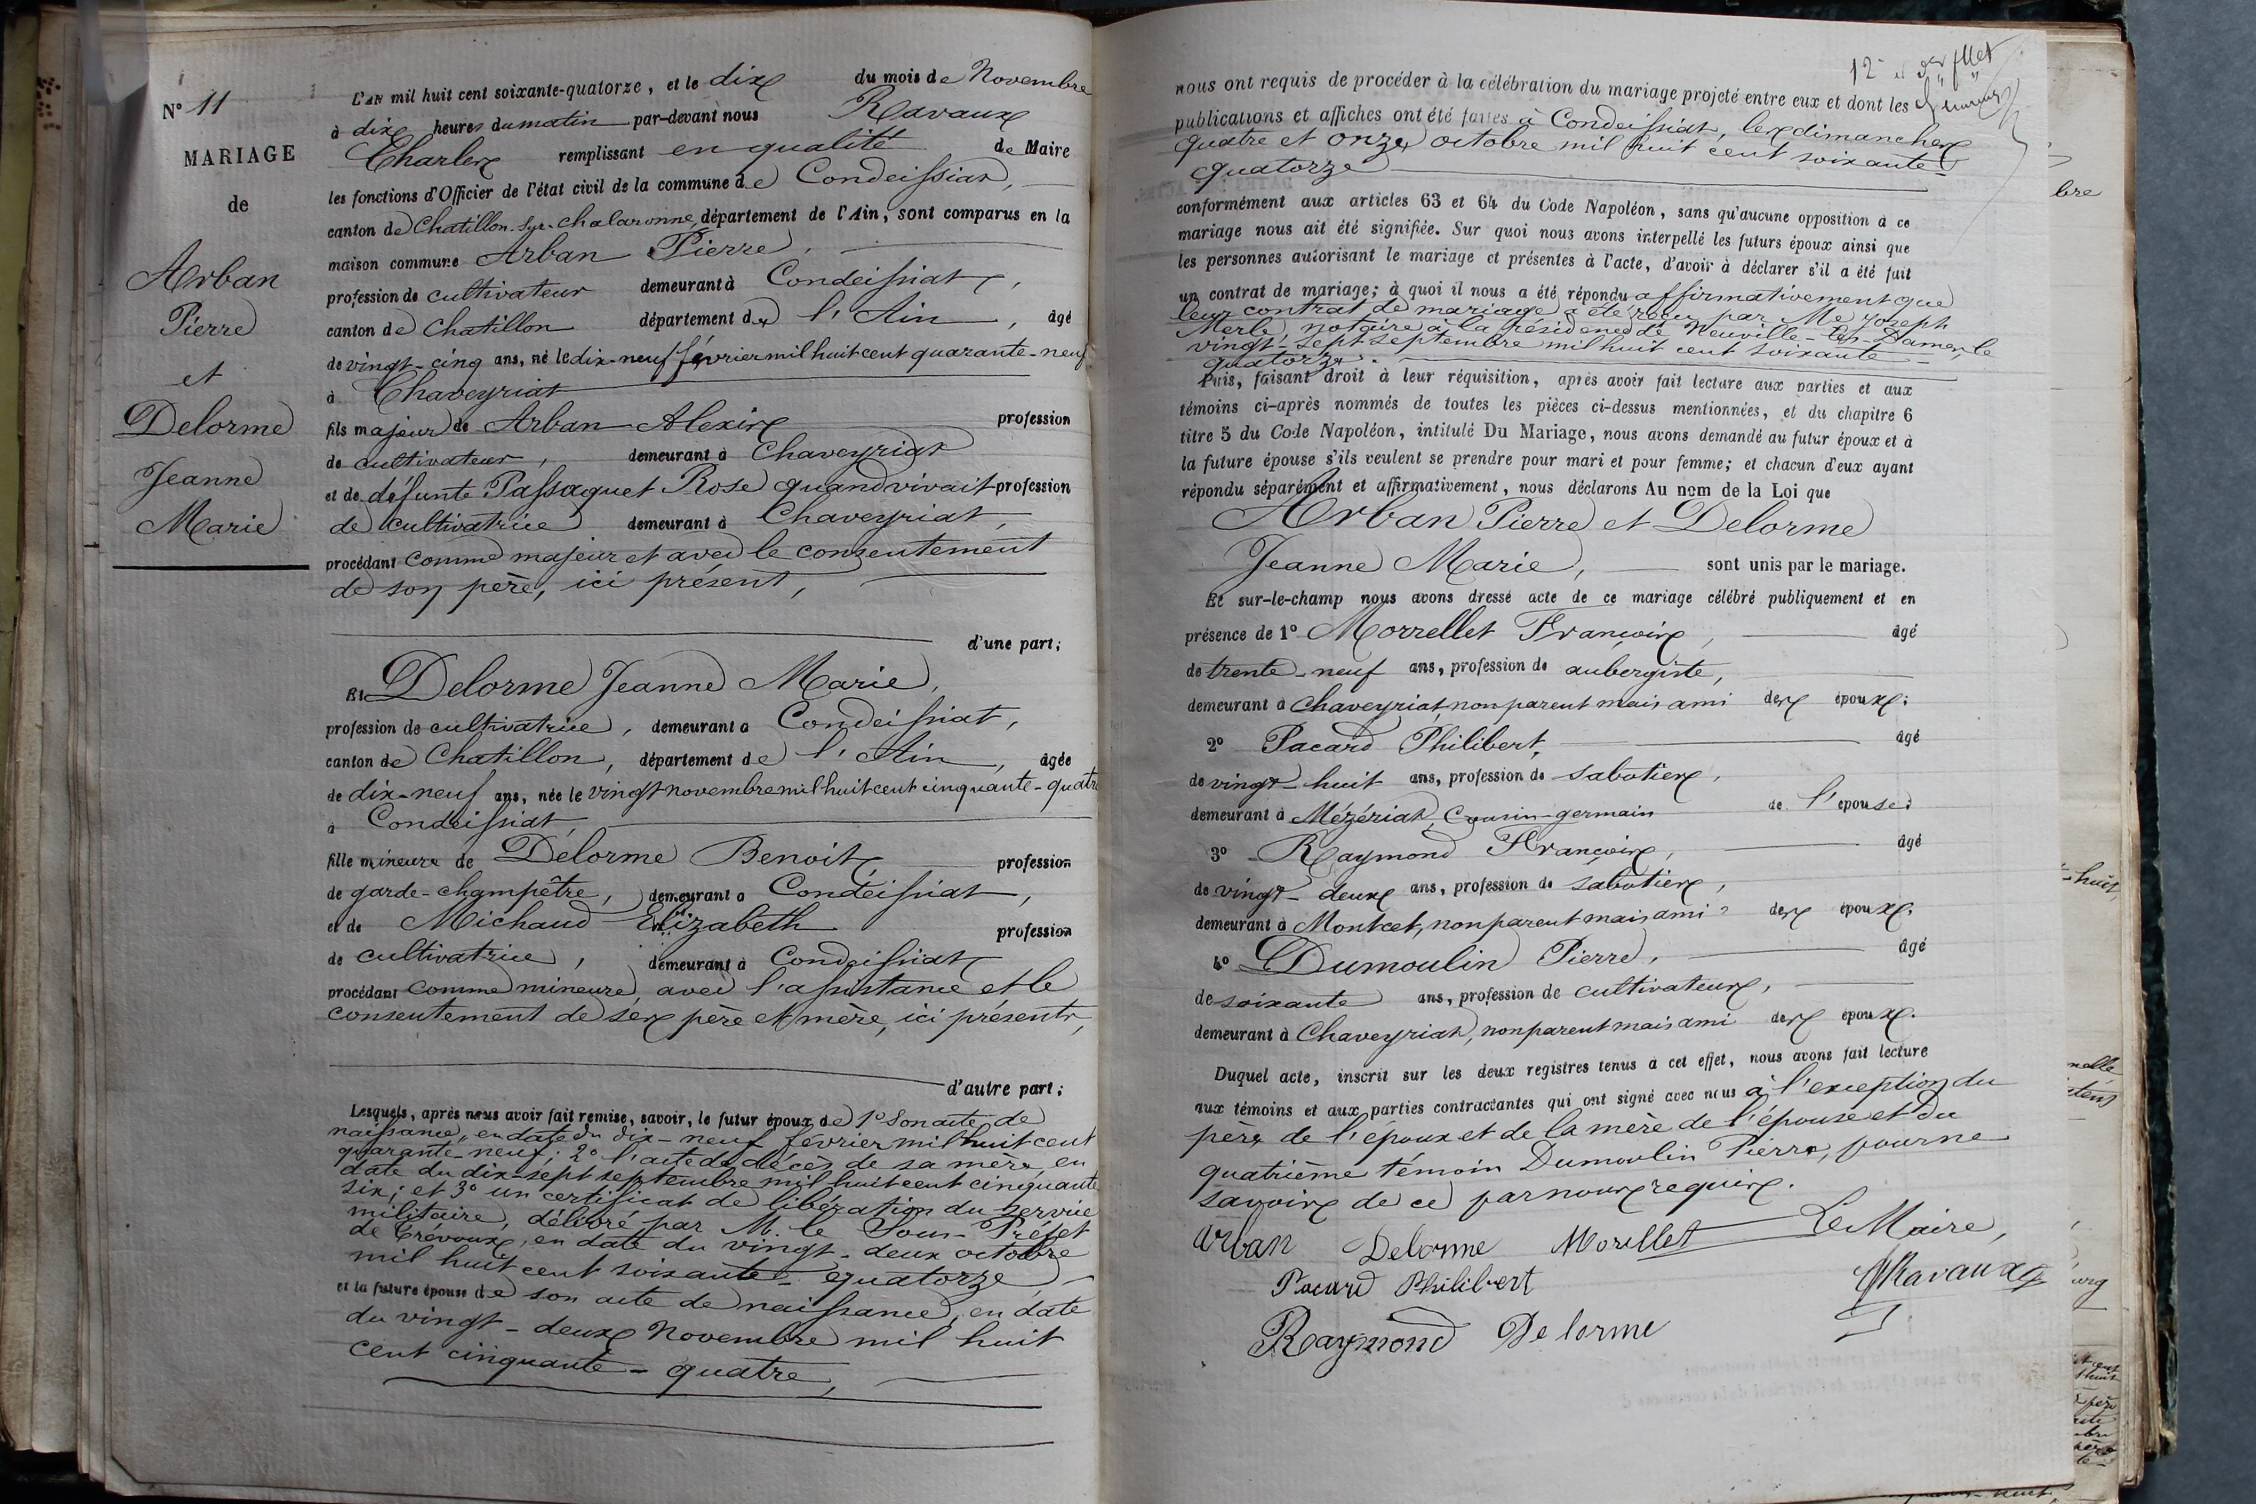 N° 11
MARIAGE
de
Arban
Pierre
et
Delorme
Jeanne
Marie
L'an mil huit cent soixante-quatorze, et le dix du mois de Novembre
à dix heures du matin par-devant nous Ravaux
Charles remplissant en qualité de Maire
les fonctions d'Officier de l'état civil de la commune de Condeissiat,
canton de Chatillon-sur-Chalaronne, département de l'Ain, sont comparus en la
maison commune Arban Pierre,
profession de cultivateur demeurant à Condeissiat,
canton de Chatillon département de l'Ain, âgé
de vingt-cinq ans, né le dix-neuf février mil huit cent quarante-neuf
à Chaveyriat
fils majeur de Arban Alexis profession
de cultivateur, demeurant à Chaveyriat
et de défunte Passaquet Rose quand vivait profession
de cultivatrice demeurant à Chaveyriat,
procédant comme majeur et avec le consentement
de son père, ici présent,
d'une part;
Et Delorme Jeanne Marie,
profession de cultivatrice, demeurant à Condeissiat,
canton de Chatillon, département de l'Ain, âgée
de dix-neuf ans, née le vingt novembre mil huit cent cinquante-quatre
à Condeissiat,
fille mineure de Delorme Benoit, profession
de garde-champêtre, demeurant à Condeissiat,
et de Michaud Elizabeth profession
de cultivatrice, demeurant à Condeissiat,
procédant comme mineure, avec l'assistance et le
consentement de ses père et mère, ici présents,
d'autre part;
Lesquels, après nous avoir fait remise, savoir, le futur époux de 1° son acte de
naissance, en date du dix-neuf février mil huit cent
quarante-neuf; 2° l'acte de décès de sa mère, en
date du dix-sept septembre mil huit cent cinquante
six; et 3° un certificat de libération du service
militaire, délivré par M. le Sous-Préfet
de Trévoux, en date du vingt-deux octobre
mil huit cent soixante-quatorze,
et la future épouse de son acte de naissance, en date
du vingt-deux Novembre mil huit
cent cinquante-quatre,
12
nous ont requis de procéder à la célébration du mariage projeté entre eux et dont les
publications et affiches ont été faites à Condeissiat, les dimanches
quatre et onze octobre mil huit cent soixante-
quatorze
conformément aux articles 63 et 64 du Code Napoléon, sans qu'aucune opposition à ce
mariage nous ait été signifiée. Sur quoi nous avons interpellé les futurs époux ainsi que
les personnes autorisant le mariage et présentes à l'acte, d'avoir à déclarer s'il a été fait
un contrat de mariage; à quoi il nous a été répondu affirmativement que
leur contrat de mariage a été reçu par Me Joseph
Merle, notaire à la résidence de Neuville-les-Dames, le
vingt-sept septembre mil huit cent soixante-
quatorze.
Puis, faisant droit à leur réquisition, après avoir fait lecture aux parties et aux
témoins ci-après nommés de toutes les pièces ci-dessus mentionnées, et du chapitre 6
titre 5 du Code Napoléon, intitulé Du Mariage, nous avons demandé au futur époux et à
la future épouse s'ils veulent se prendre pour mari et pour femme; et chacun d'eux ayant
répondu séparément et affirmativement, nous déclarons Au nom de la Loi que
Arban Pierre et Delorme
Jeanne Marie, sont unis par le mariage.
Et sur-le-champ nous avons dressé acte de ce mariage célébré publiquement et en
présence de 1° Morrellet François, âgé
de trente-neuf ans, profession de aubergiste,
demeurant à Chaveyriat, non parent mais ami des époux;
2° Pacard Philibert, âgé
de vingt-huit ans, profession de sabotier,
demeurant à Mézériat, Cousin-germain de l'épouse;
3° Raymond François, âgé
de vingt-deux ans, profession de sabotier,
demeurant à Montcet, non parent mais ami des époux.
4° Dumoulin Pierre, âgé
de soixante ans, profession de cultivateur,
demeurant à Chaveyriat, non parent mais ami des époux.
Duquel acte, inscrit sur les deux registres tenus à cet effet, nous avons fait lecture
aux témoins et aux parties contractantes qui ont signé avec nous à l'exception du
père de l'époux et de la mère de l'épouse et du
quatrième témoin Dumoulin Pierre, pour ne
savoir de ce par nous requis.
Arban Delorme Morellet Le Maire,
Pacard Philibert Ravaux
Raymond Delorme